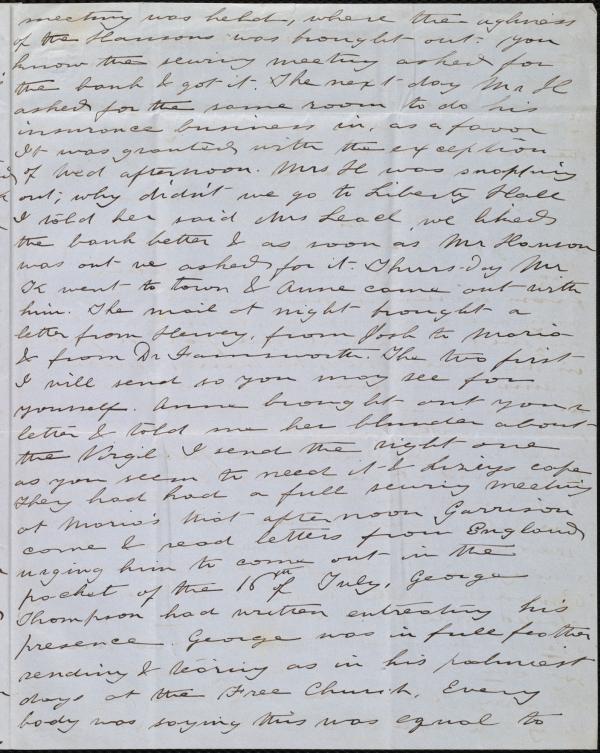 meeting was held, where the ugliness
of the Hansons was brought out. You
know the sewing meeting asked for
the bank & got it. The next day Mr H
asked for the same room to do his
insurance business in, as a favor
It was granted with the exception
of Wed afternoon. Mrs H was snapping
out; why didn't we go to Liberty Hall
I told her said Mrs Leach, we liked
the bank better & as soon as Mr Hanson
was out we asked for it. Thursday Mr
K went to town & Anne came out with
him. The mail at night brought a
letter from Hervey, from Josh to Maria
& from Dr Farnsworth. The two first
I will send so you may see for
yourself. Anne brought out your
letter & told me her blunder about
the Virgil I send the right one
as you seem to need it & Lizzys cape
They had had a full sewing meeting
at Maria's that afternoon Garrison
come & read letters from England
urging him to come out in the
packet of the 16th of July, George
Thompson had written entreating his
presence. George was in full feather
rending & tearing as in his palmiest
days at the Free Church. Every
body was saying this was equal to